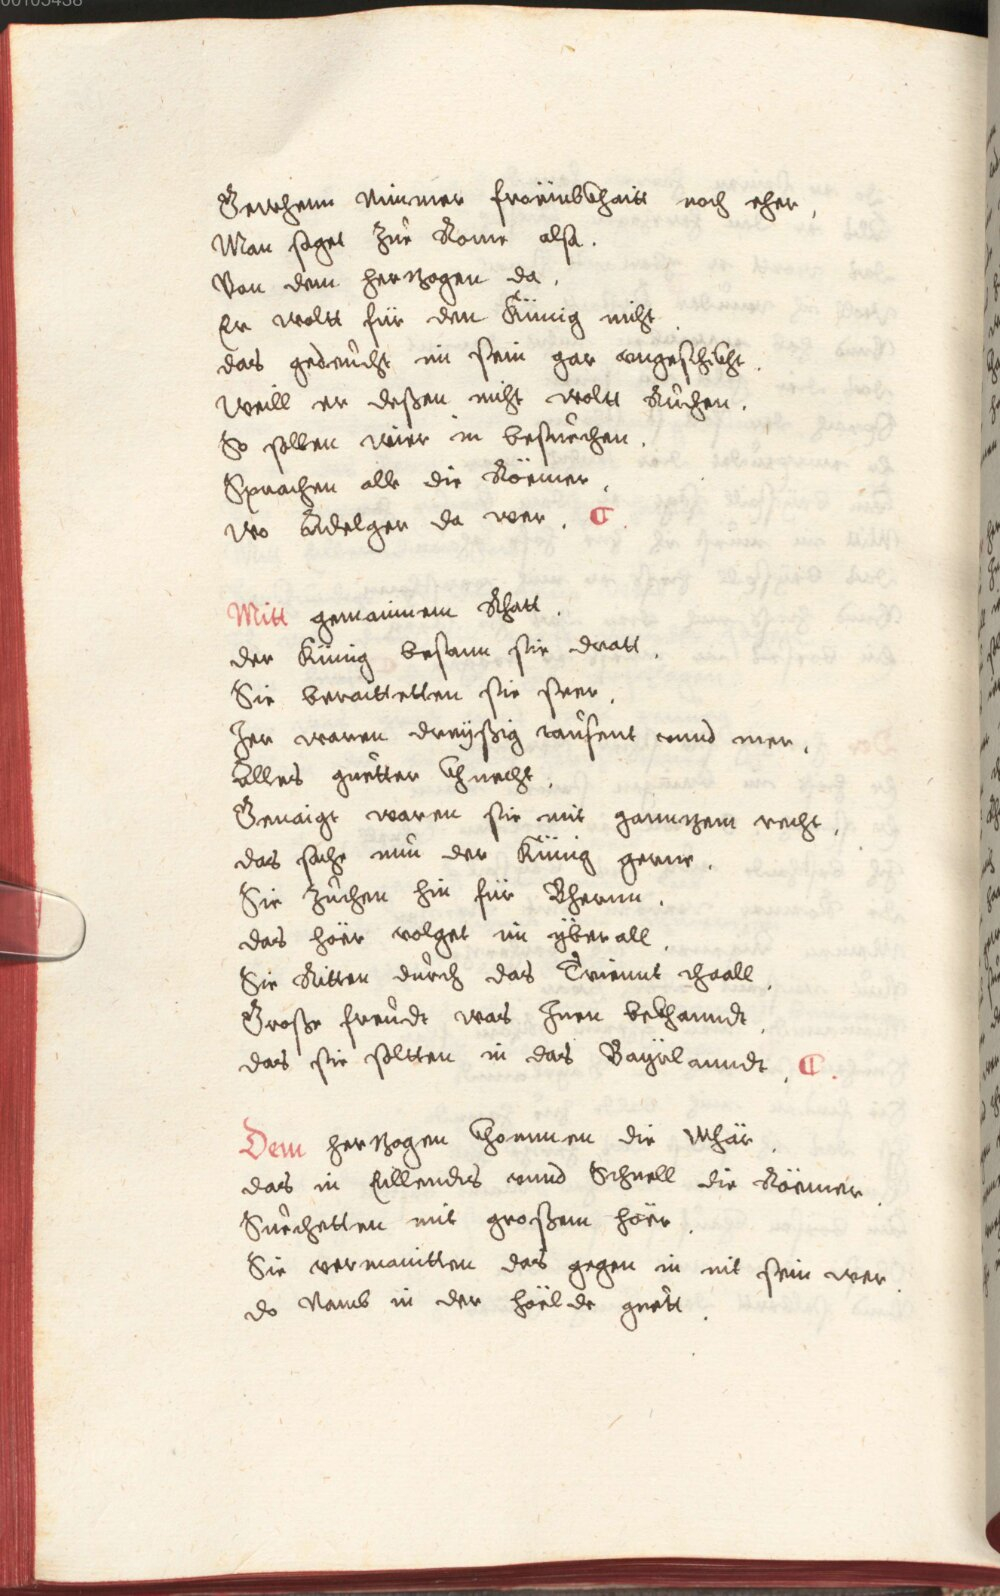 00103438
Gewhenn Nimmer froëmbkhaitt noch eher,
Man saget Zue Rome also.
Von dem herzogen da.
Er woltt für den Künig nicht
das gedeucht in sein gar ungeschickt.
Weill er deßen nicht woltt Ruchen.
So sollen wier in besuechen.
Sprachen alle die Röemer,
wo Adelger da wer. C.
Mitt gemainem Rhatt.
der Künig besann sie dratt.
Sie beraittetten sie seer,
Jer waren dreyßig tausent unnd mer,
Alles guetter khnecht,
Genaigt waren sie mit ganntzem recht,
das sache nun der Künig gerne.
Sie Zuchen hin für Bhernn.
das höer volget im yber all,
Sie Ritten durch das Triennt thaall,
Große freudt was Jnen bekhanndt,
das sie soltten in das Bayrlanndt. C.
Dem herzogen khommen die Mhär,
das in Eillendts unnd Schnell die Röemer
Suechetten mit großem höer.
Sie vermainitten das gegen in nit sein wer.
do Namb in der höelde guett.